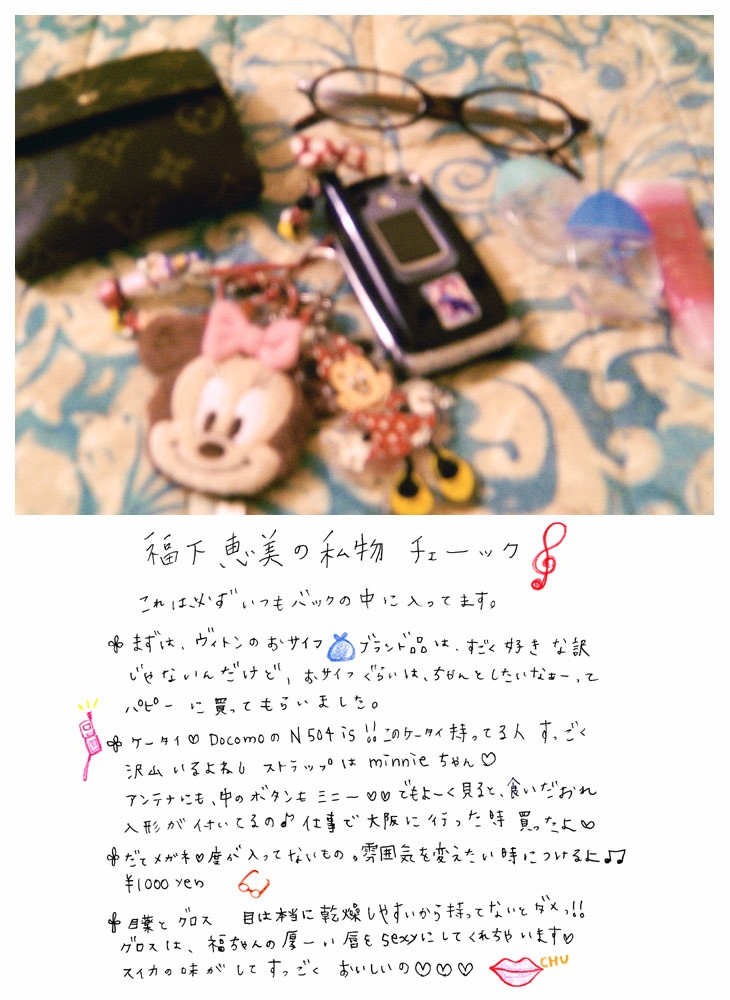 福下恵美の私物 チェーック
これは必ずいつもバックの中に入ってます。
まずは、ヴィトンのおサイフ ブランド品は、すごく好きな訳
じゃないんだけど、おサイフぐらいは、ちゃんとしたいなぁーって
パピーに買ってもらいました。
ケータイ♡ DocomoのN504is!!このケータイ持ってる人 すっごく
沢山いるよねし ストラップは minnie ちゃん♡
アンテナにも、中のボタンもミニー♡♡でもよーく見ると、食いだおれ
人形が付いてるの♪仕事で大阪に行った時買ったよ♡
だてメガネ♡度が入ってないもの。雰囲気を変えたい時につけるよ♫
¥1000 yen
目薬とグロス 目は本当に乾燥しやすいから持ってないとダメっ!!
グロスは、福ちゃんの厚ーい唇をsexyにしてくれちゃいます♡
スイカの味がしてすっごく おいしいの♡♡♡
CHU